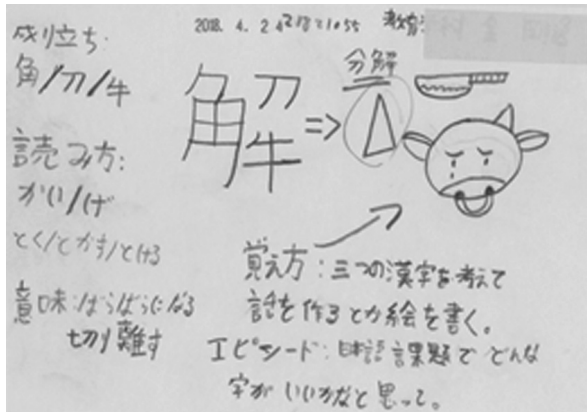 2018. 4. 2
成り立ち:
角/刀/牛
読み方:
かい/げ
とく/とかす/とける
意味:ばらばらになる
切り離す
解 =>
分解
覚え方:三つの漢字を考えて
話を作るとか絵を書く。
エピソード:日本語課題でどんな
字がいいかなと思って。